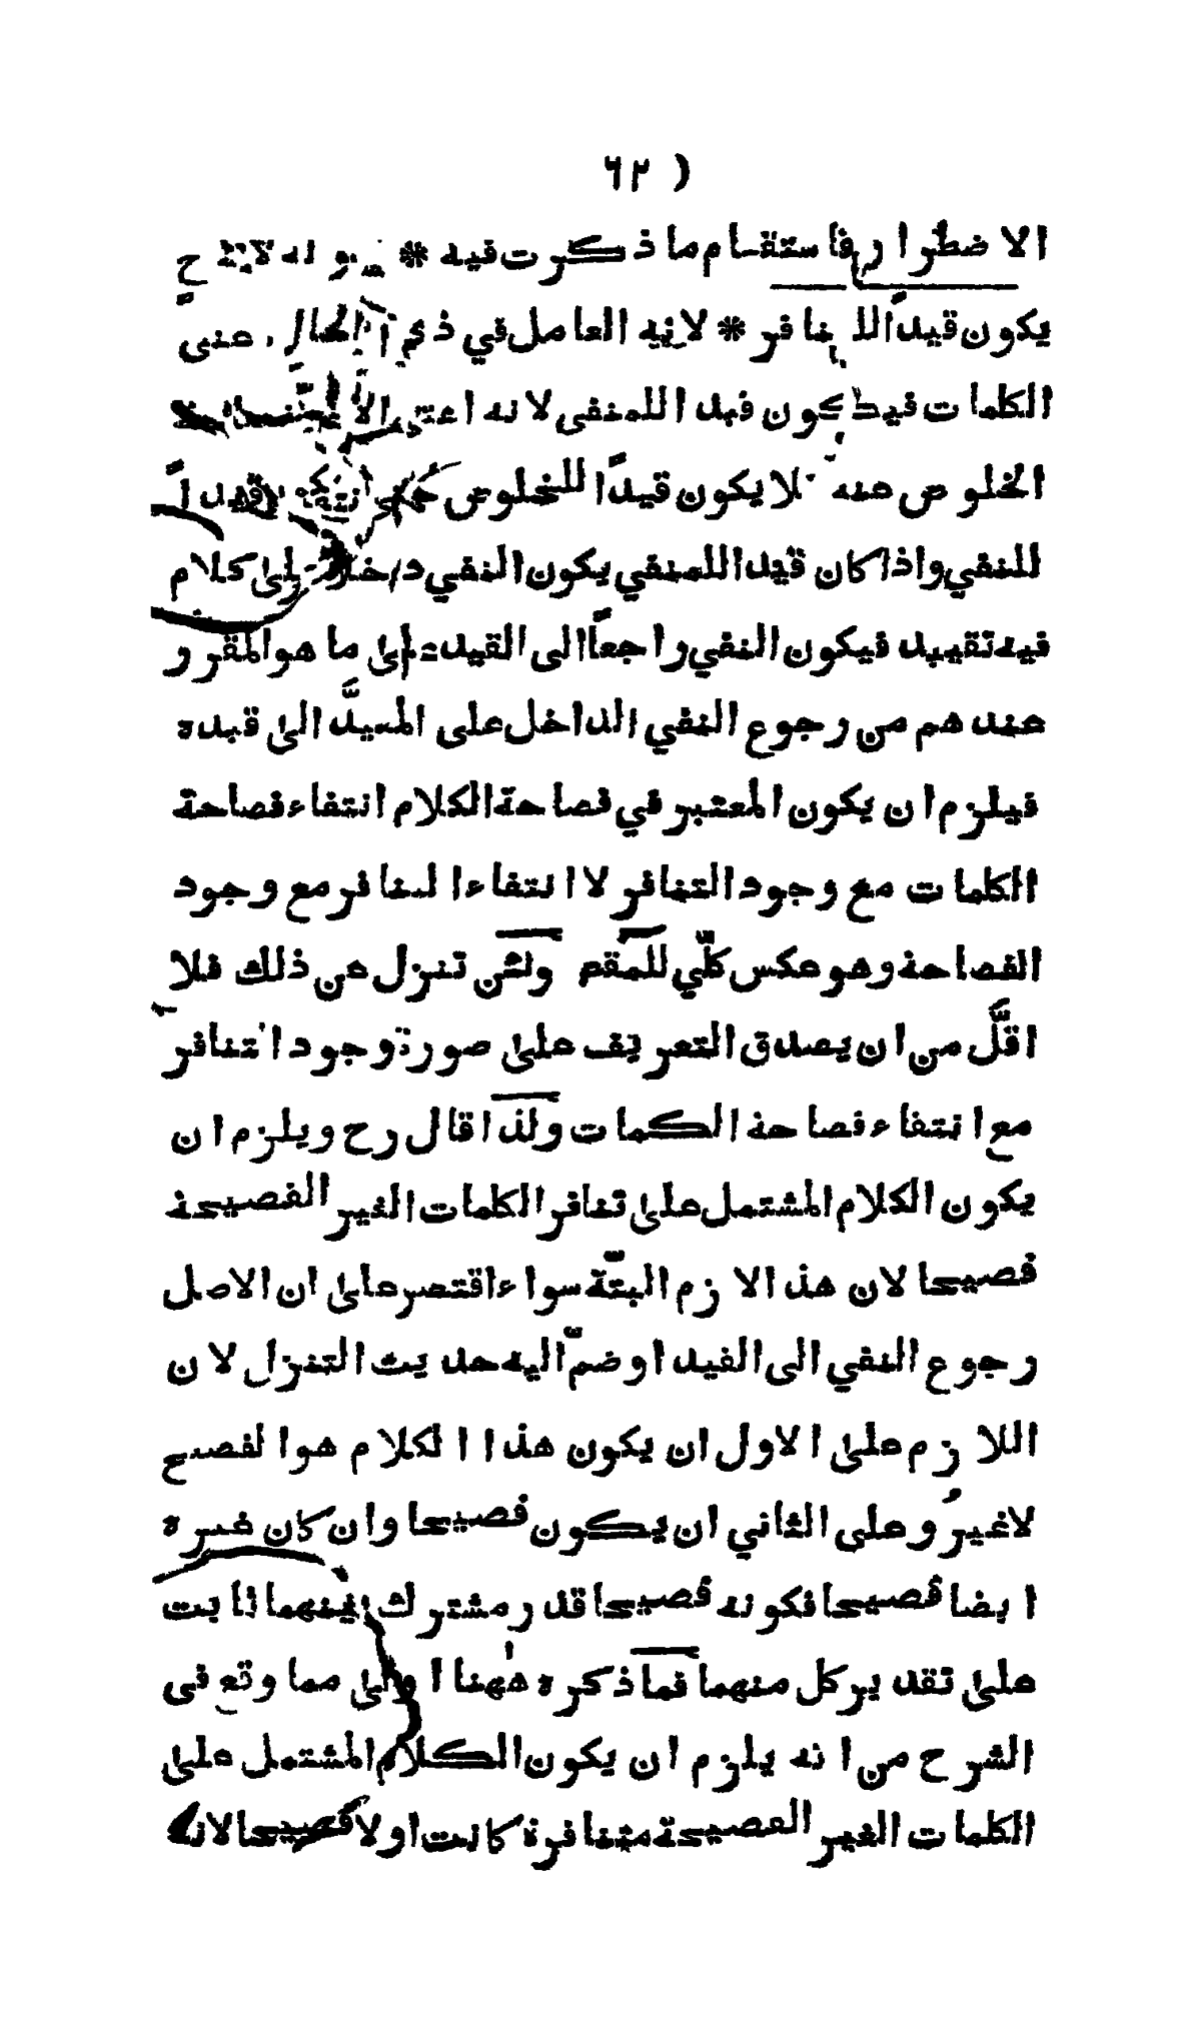 ( ٦٢
الاضطرار فاستقام ما ذكرت فيه *
يكون قيداً للتنافر * لانه العامل في ذي الحال
الكلمات فيكون قيدا للمنفى لانه
الخلوص عنه لا يكون قيداً للخلوص قيداً
للنفي واذا كان قيدا للمنفي يكون النفي داخلا على كلام
فيه تقييد فيكون النفي راجعاً الى القيد على ما هو المقرر
عندهم من رجوع النفي الداخل على المقيَّد الى قيده
فيلزم ان يكون المعتبر في فصاحة الكلام انتفاء فصاحة
الكلمات مع وجود التنافر لا انتفاء التنافر مع وجود
الفصاحة وهو عكس كلّي للمقصد ولئن تنزل عن ذلك فلا
اقلَّ من ان يصدق التعريف على صورة وجود التنافر
مع انتفاء فصاحة الكمات ولذا قال رح ويلزم ان
يكون الكلام المشتمل على تنافر الكلمات الغير الفصيحة
فصيحا لان هذا لازم البتّة سواء اقتصر على ان الاصل
رجوع النفي الى القيد او ضمّ اليه حديث التنزل لان
اللازم على الاول ان يكون هذا الكلام هو الفصيح
لا غير وعلى الثاني ان يكون فصيحا وان كان غيره
ايضا فصيحا فكونه فصيحا قدر مشترك بينهما ثابت
على تقدير كل منهما فما ذكره ههنا اولى مما وقع في
الشرح من انه يلزم ان يكون الكلام المشتمل على
الكلمات الغير الفصيحة متنافرة كانت اولا فصيحا لانه